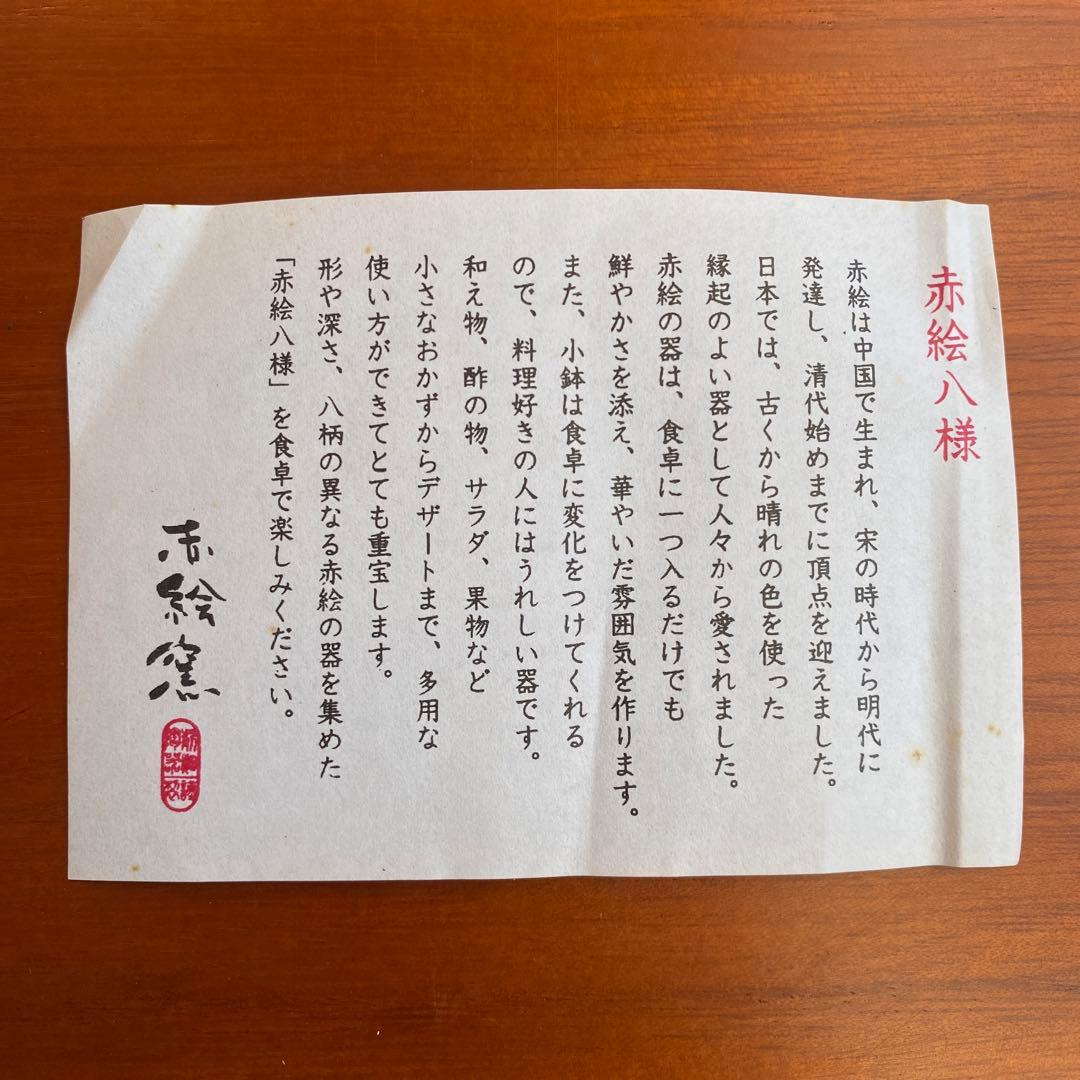 赤絵八様
赤絵は中国で生まれ、宋の時代から明代に
発達し、清代始めまでに頂点を迎えました。
日本では、古くから晴れの色を使った
縁起のよい器として人々から愛されました。
赤絵の器は、食卓に一つ入るだけでも
鮮やかさを添え、華やいだ雰囲気を作ります。
また、小鉢は食卓に変化をつけてくれる
ので、料理好きの人にはうれしい器です。
和え物、酢の物、サラダ、果物など
小さなおかずからデザートまで、多用な
使い方ができてとても重宝します。
形や深さ、八柄の異なる赤絵の器を集めた
「赤絵八様」を食卓で楽しみください。
赤絵窯